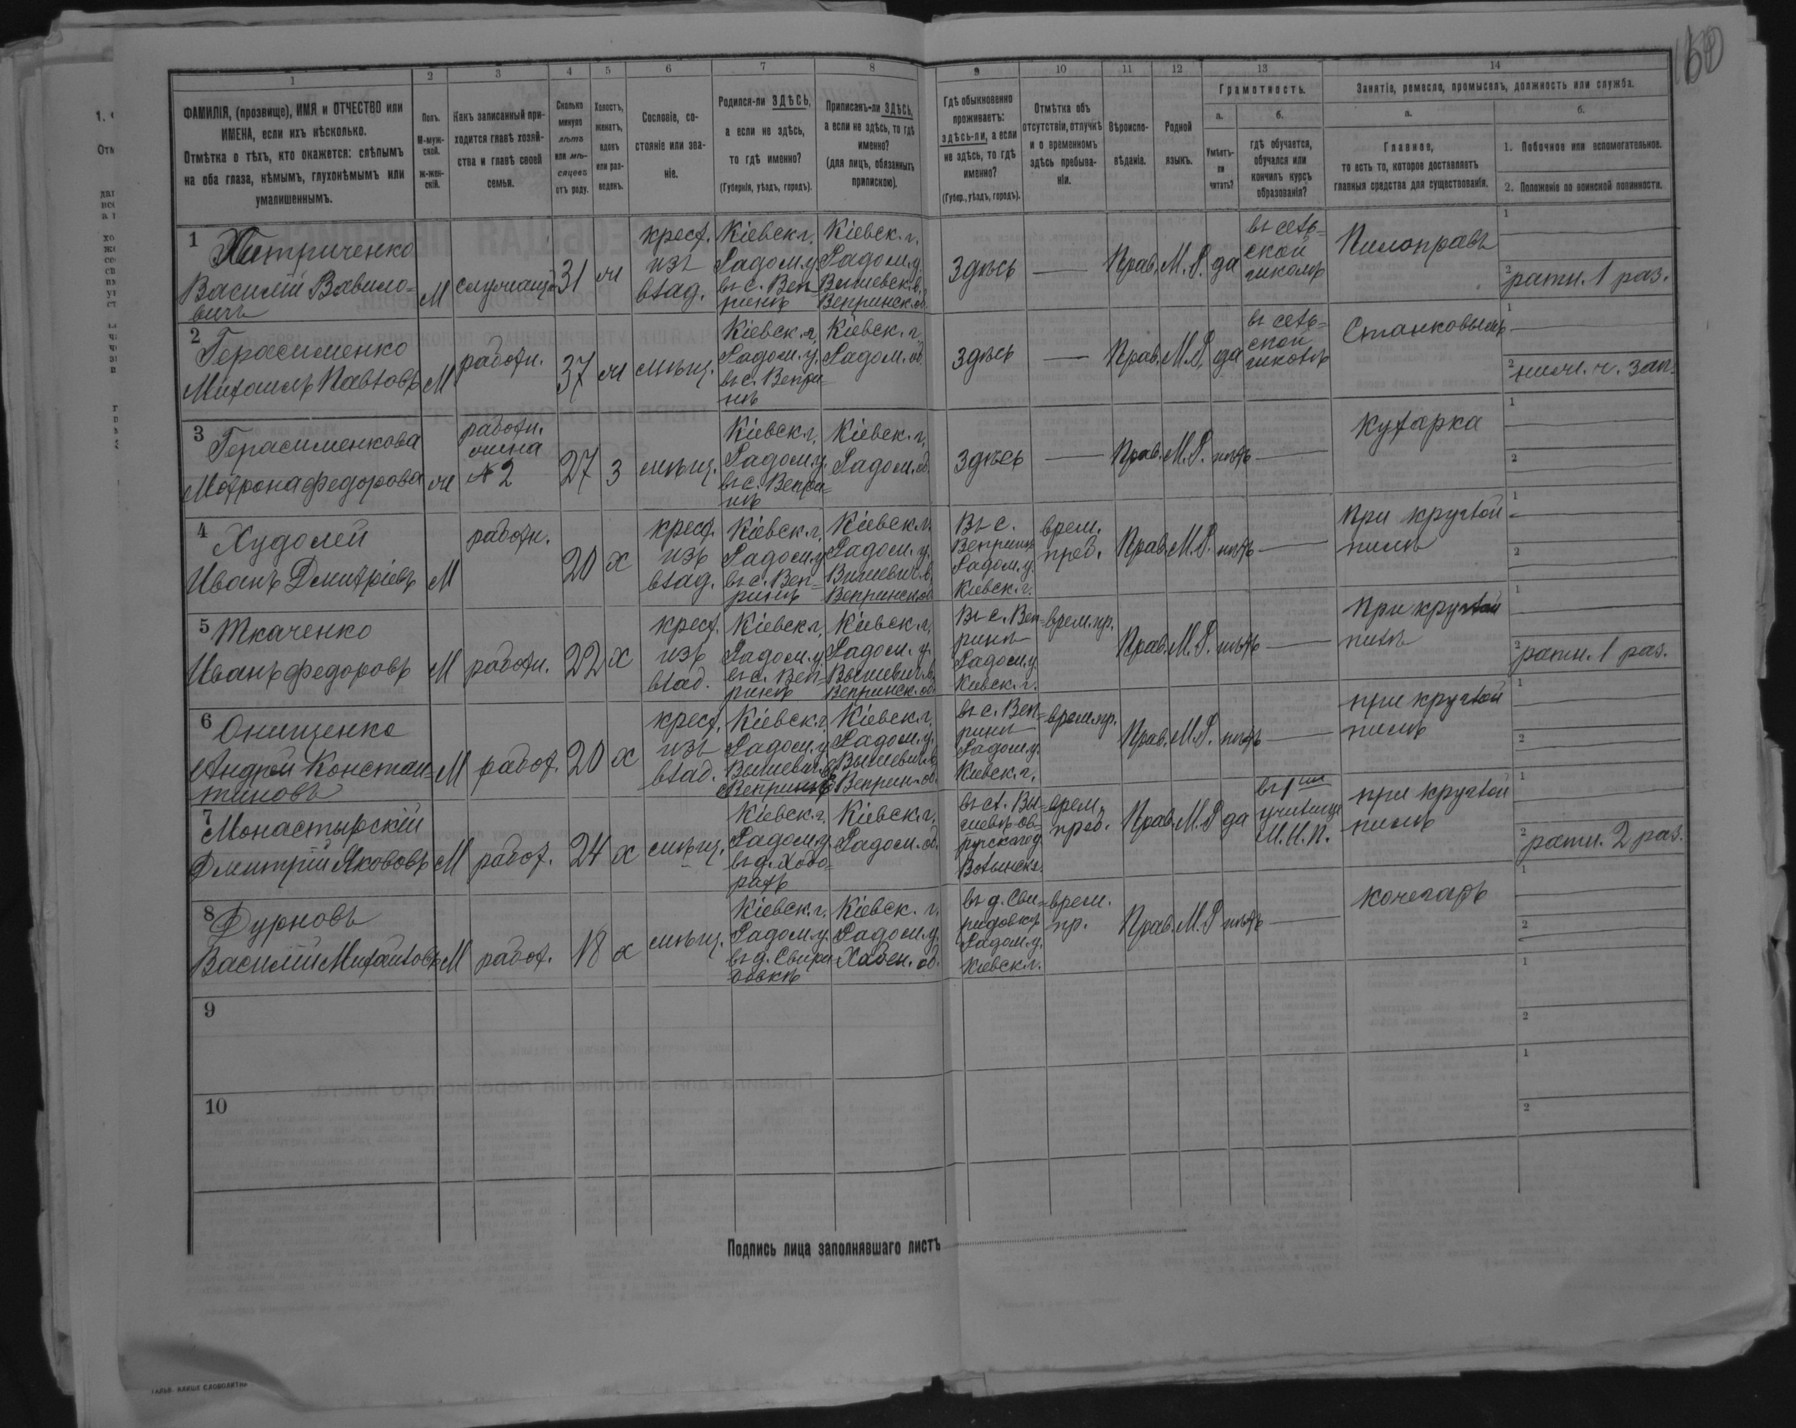 160
1 2 3 4 5 6 7 8 9 10 11 12 13 14
ФАМИЛІЯ, (прозвище), ИМЯ и ОТЧЕСТВО или
ИМЕНА, если ихъ нѣсколько.
Отмѣтка о тѣхъ, кто окажется: слѣпымъ
на оба глаза, нѣмымъ, глухонѣмымъ или
умалишеннымъ.
Полъ.
М-муж-
ской.
Ж-жен-
скій.
Какъ записанный при-
ходится главѣ хозяй-
ства и главѣ своей
семьи.
Сколько
минуло
лѣтъ
или мѣ-
сяцевъ
отъ роду.
Холостъ,
женатъ,
вдовъ
или раз-
веденъ.
Сословіе, со-
стояніе или зва-
ніе.
Родился-ли ЗДѢСЬ,
а если не здѣсь,
то гдѣ именно?
(Губернія, уѣздъ, городъ).
Приписанъ-ли ЗДѢСЬ,
а если не здѣсь, то гдѣ
именно?
(для лицъ, обязанныхъ
припискою).
Гдѣ обыкновенно
проживаетъ:
здѣсь-ли, а если
не здѣсь, то гдѣ
именно?
(Губер., уѣздъ, городъ).
Отмѣтка объ
отсутствіи, отлучкѣ
и о временномъ
здѣсь пребыва-
ніи.
Вѣроиспо-
вѣданіе.
Родной
языкъ.
Грамотность.
а.
Умѣетъ-
ли
читать?
б.
гдѣ обучается,
обучался или
кончилъ курсъ
образованія?
Занятіе, ремесло, промыселъ, должность или служба.
а.
Главное,
то есть то, которое доставляетъ
главныя средства для существованія.
б.
1. Побочное или вспомогательное.
2. Положеніе по воинской повинности.
1
Василій Вавило-
вичъ
М
служащ.
31
ж
крест.
изъ
влад.
Кіевск. г.
Радом. у.
въ с. Веп
ринѣ
Кіевск. г.
Радом. у.
Вепринск. об.
здѣсь
—
Прав.
М. Р.
да
въ сель-
ской
школѣ
Пилоправъ
1
2 ратн. 1 раз.
2
Герасименко
Михаилъ Павловъ
М
работн.
37
ж
мѣщ.
Кіевск. г.
Радом. у.
въ с. Вепри-
нѣ
Кіевск. г.
Радом. об.
здѣсь
—
Прав.
М. Р.
да
въ сель-
ской
школѣ
1
2 нижн. ч. зап.
3
Герасименкова
Мотрона Федорова
ж
работн.
жена
№ 2
27
з
мѣщ.
Кіевск. г.
Радом. у.
въ с. Вепри-
нѣ
Кіевск. г.
Радом. об.
здѣсь
—
Прав.
М. Р.
нѣтъ
—
Кухарка
1
2
4
Худолей
Иванъ Дмитріевъ
М
работн.
20
х
крест.
изъ
влад.
Кіевск. г.
Радом. у.
въ с. Веп-
ринѣ
Кіевск. г.
Радом. у.
Вышевич. в.
Вепринск. об.
Въ с.
Вепринѣ
Радом. у.
Кіевск. г.
врем.
преб.
Прав.
М. Р.
нѣтъ
—
При круглой
пилѣ
1
2
5
Ткаченко
Иванъ Федоровъ
М
работн.
22
х
крест.
изъ
влад.
Кіевск. г.
Радом. у.
въ с. Веп-
ринѣ
Кіевск. г.
Радом. у.
Вышевич. в.
Вепринск. об.
Въ с. Веп-
ринѣ
Радом. у.
Кіевск. г.
врем. пр.
Прав.
М. Р.
нѣтъ
—
При круглой
пилѣ
1
2 ратн. 1 раз.
6
Онищенко
Андрей Констан-
тиновъ
М
работ.
20
х
крест.
изъ
влад.
Кіевск. г.
Радом. у.
Вышевич. в.
Вепринѣ
Кіевск. г.
Радом. у.
Вышевич. в.
Веприн. об.
въ с. Веп-
ринѣ
Радом. у.
Кіевск. г.
врем. пр.
Прав.
М. Р.
нѣтъ
—
при круглой
пилѣ
1
2
7
Монастырскій
Дмитрій Яковлевъ
М
работ.
24
х
мѣщ.
Кіевск. г.
Радом. у.
Кіевск. г.
Радом. об.
врем.
преб.
Прав.
М. Р.
да
училищѣ
при круглой
пилѣ
1
2 ратн. 2 раз.
8
Дурновъ
Василій Михайловъ
М
работ.
18
х
мѣщ.
Кіевск. г.
Радом. у.
въ д. Свири-
довкѣ
Кіевск. г.
Радом. у.
Хабен. об.
въ д. Сви-
ридовкѣ
Радом. у.
Кіевск. г.
врем.
пр.
Прав.
М. Р.
нѣтъ
—
Кочегаръ
1
2
9
1
2
10
1
2
Подпись лица заполнявшаго листъ